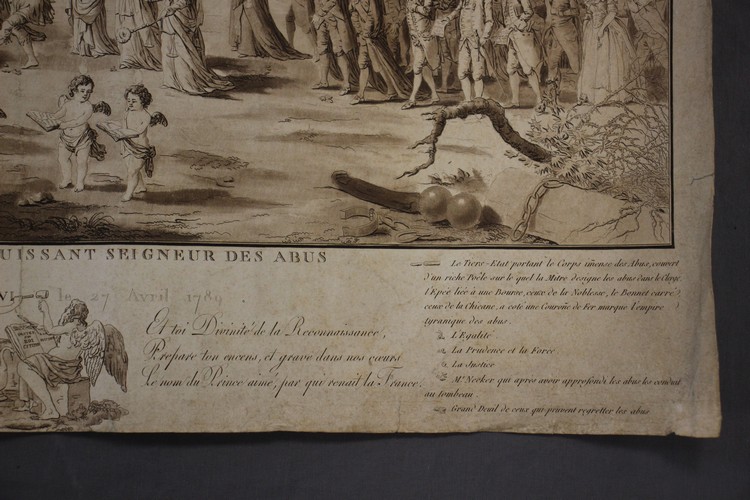 UISSANT SEIGNEUR DES ABUS
le 27 Avril 1789
Et toi Divinité de la Reconnaissance,
Prepare ton encens, et grave dans nos cœurs
Le nom du Prince aimé, par qui renait la France.
Le Tiers-Etat portant le Corps imense des Abus, couvert
d'un riche Poêle sur le quel la Mitre désigne les abus dans le Clergé,
l'Epée liée à une Bourse, ceux de la Noblesse, le Bonnet carré
ceux de la Chicane, a coté une Couroñe de Fer marque l'empire
tyranique des abus.
L'Egalité
La Prudence et la Force
La Justice
Mr. Necker qui après avoir approfondi les abus les conduit
au tombeau
Grand Deuil de ceux qui peuvent regretter les abus